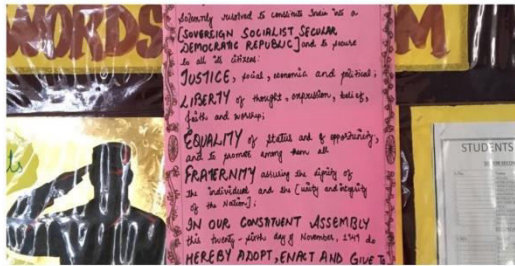 WORDS
M
solemnly resolved to constitute India into a
[SOVEREIGN SOCIALIST SECULAR
DEMOCRATIC REPUBLIC] and to secure
to all its citizens:
JUSTICE, social, economic and political;
LIBERTY of thought, expression, belief,
faith and worship;
EQUALITY of status and of opportunity,
and to promote among them all
FRATERNITY assuring the dignity of
the individual and the [unity and integrity
of the Nation];
IN OUR CONSTITUENT ASSEMBLY
this twenty-sixth day of November, 1949 do
HEREBY ADOPT, ENACT AND GIVE TO
STUDENTS